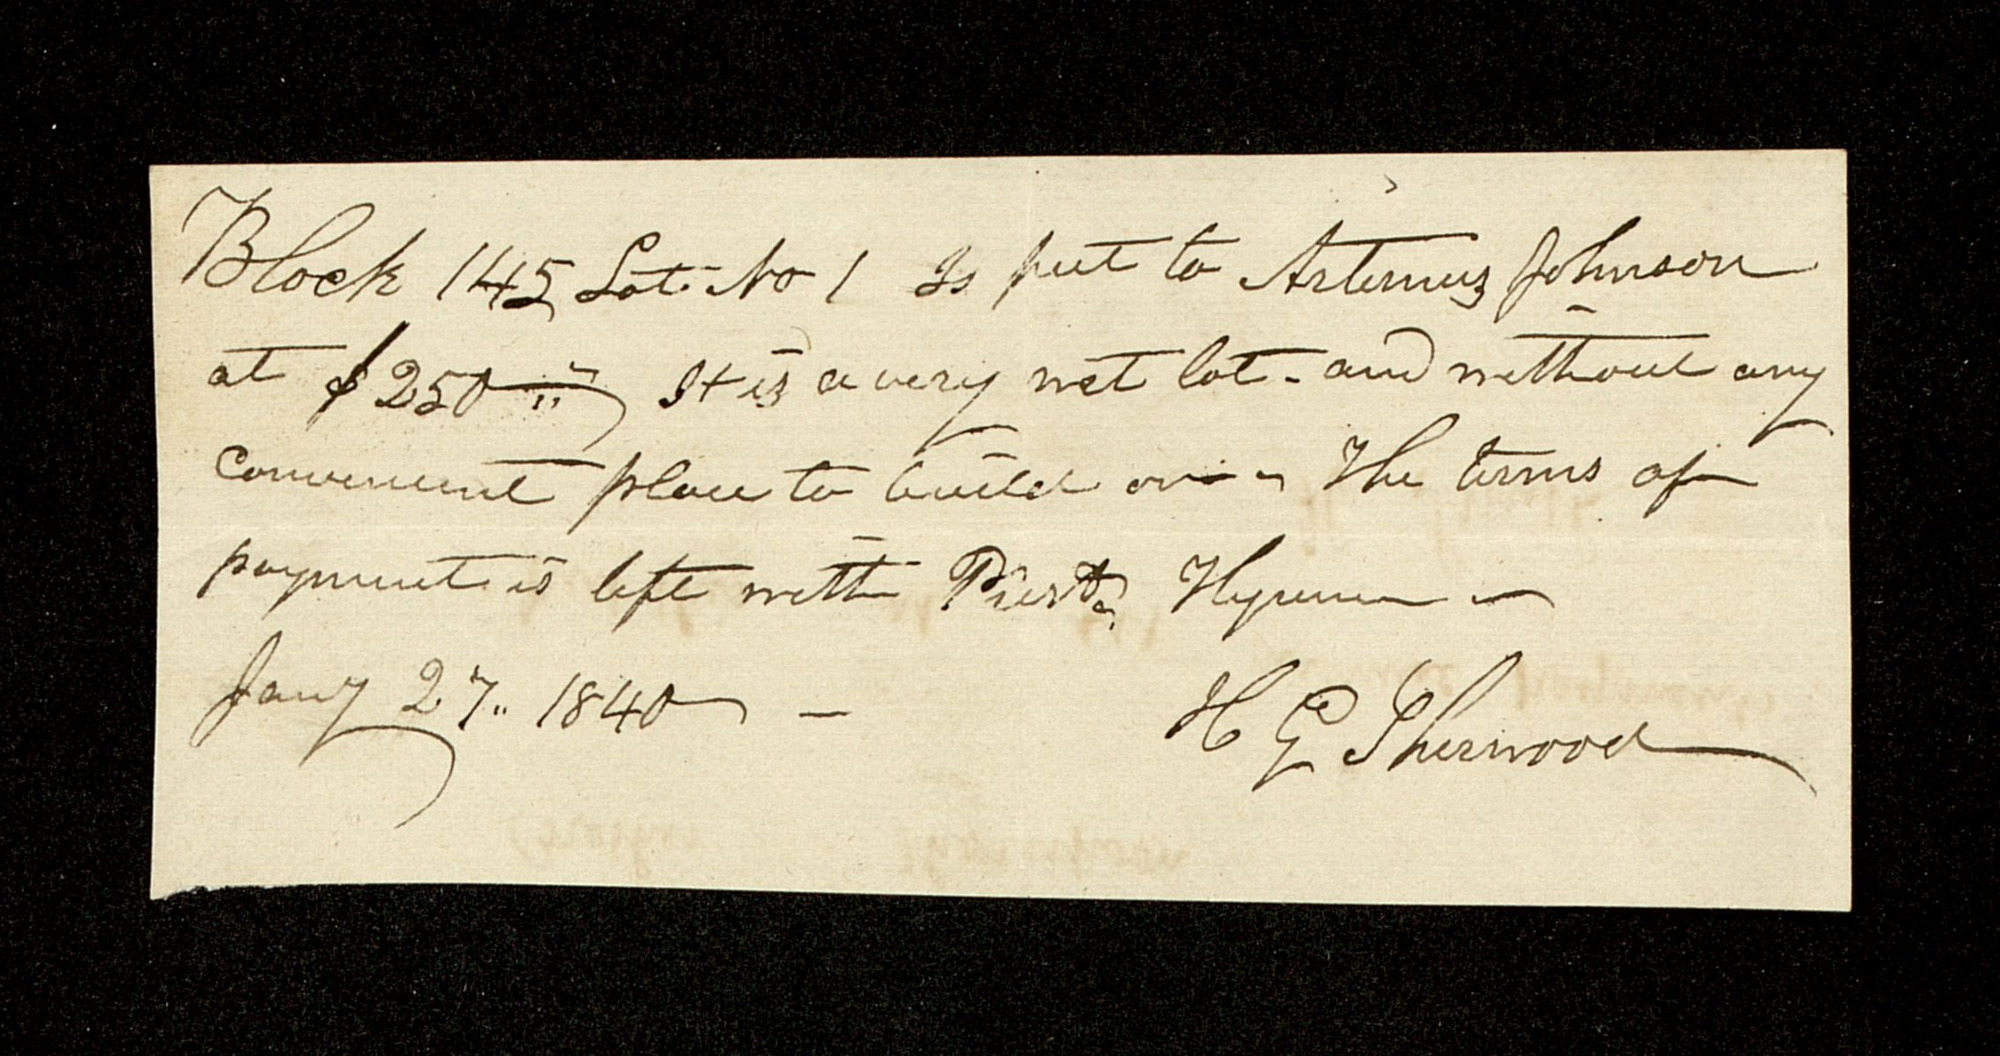 Block 145 Lot No 1 Is put to Artemus Johnson
at $250 It is a very wet lot - and without any
convenient place to build on - The terms of
payment is left with Prest. Hyrum -
Jany 27. 1840 -
H G Sherwood